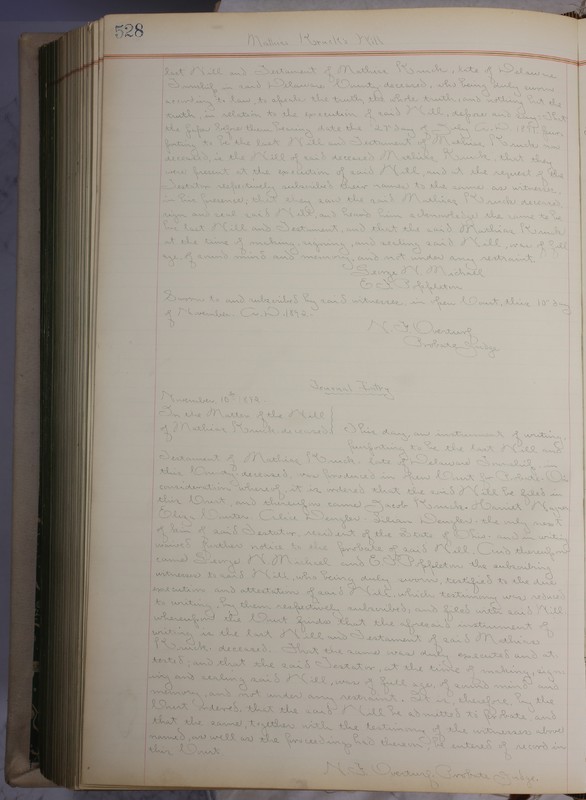 528
Will
last Will and Testament of Mathias Krunck, late of Delaware
Township in said Delaware County, deceased, who being duly sworn
according to law, to speak the truth, the whole truth, and nothing but the
truth, in relation to the execution of said Will, depose and say: That
the paper before them bearing date the 28 day of A.D. pur-
porting to be the last Will and Testament of Mathias Krunck now
deceased, is the Will of said deceased Mathias Krunck, that they
were present at the execution of said Will, and at the request of the
Testator respectively subscribed their names to the same as witnesses
in his presence; that they saw the said Mathias Krunck deceased
sign and seal said Will, and heard him acknowledge the same to be
his last Will and Testament, and that the said Mathias Krunck
at the time of making, signing, and sealing said Will, was of full
age, of sound mind and memory, and not under any restraint.
George W. Michael
E. T. Poppleton
Sworn to and subscribed by said witnesses in open Court, this 10" day
of November A.D. 1898.
N. F. Overturf
Probate Judge
Journal Entry
November 10th 1898.
In the Matter of the Will
of Mathias Krunck deceased This day, an instrument of writing,
purporting to be the last Will and
Testament of Mathias Krunck, late of Delaware Township in
this County, deceased, was produced in open Court for Probate. On
consideration whereof, it is ordered that the said Will be filed in
this Court, and thereupon came Jacob Krunck,
the only next
of kin of said Testator, resident of the State of Ohio and in writing
waived further notice to the probate of said Will. And thereupon
came George W. Michael and E. T. Poppleton the subscribing
witnesses to said Will, who being duly sworn, testified to the due
execution and attestation of said Will, which testimony was reduced
to writing, by them respectively subscribed, and filed with said Will
whereupon the Court finds that the aforesaid instrument of
writing is the last Will and Testament of said Mathias
Krunck, deceased. That the same was duly executed and at-
tested; and that the said Testator, at the time of making, sign-
ing and sealing said Will, was of full age, of sound mind and
memory, and not under any restraint. It is, therefore, by the
Court ordered, that the said Will be admitted to Probate and
that the same, together with the testimony of the witnesses above
named, as well as the proceedings had thereon, be entered of record in
this Court.
N. F. Overturf, Probate Judge